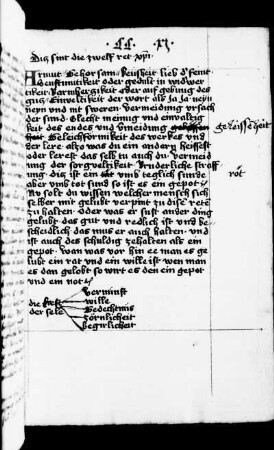 Diß sint die zwelf ret xpi
Armut Gehorsam Keusheit lieb d' feint
Senftmutikeit oder gedult in widwer
tikeit Barmhertzikeit oder auf gebung des
gutz Einveltikeit der wort als Ja Ja neyn
neyn und nit sweren Vermeidung ursach
der sund Slecht meinung und einvaltig
keit des endes und Vmeidung
Geleichförmikeit des werkes und
der lere also was du ein andern heissest
oder lerest das selb tu auch du Vermei
ung der sorgveltikeit Bruderliche stroff
ung diß ist ein umb teglich sunde
aber umb tot sund so ist es ein gepot
Nu solt du wissen welcher mensch sich
selber mit gelubt verpint zu disen reten
zu halten oder was er sust ander ding
gelubt das gut und redlich ist und be
scheidlich das mus er auch halten und
ist auch des schuldig zehalten als ein
gepot wan was vor hin ee man es ge
lubt ein rat und ein wille ist wen man
es dan gelobt so wirt es den ein gepot
und ein not
geleisse heit
rot
die kreft
der sele
Vernunft
wille
Gedechtnis
Zörnlicheit
Begirlicheit